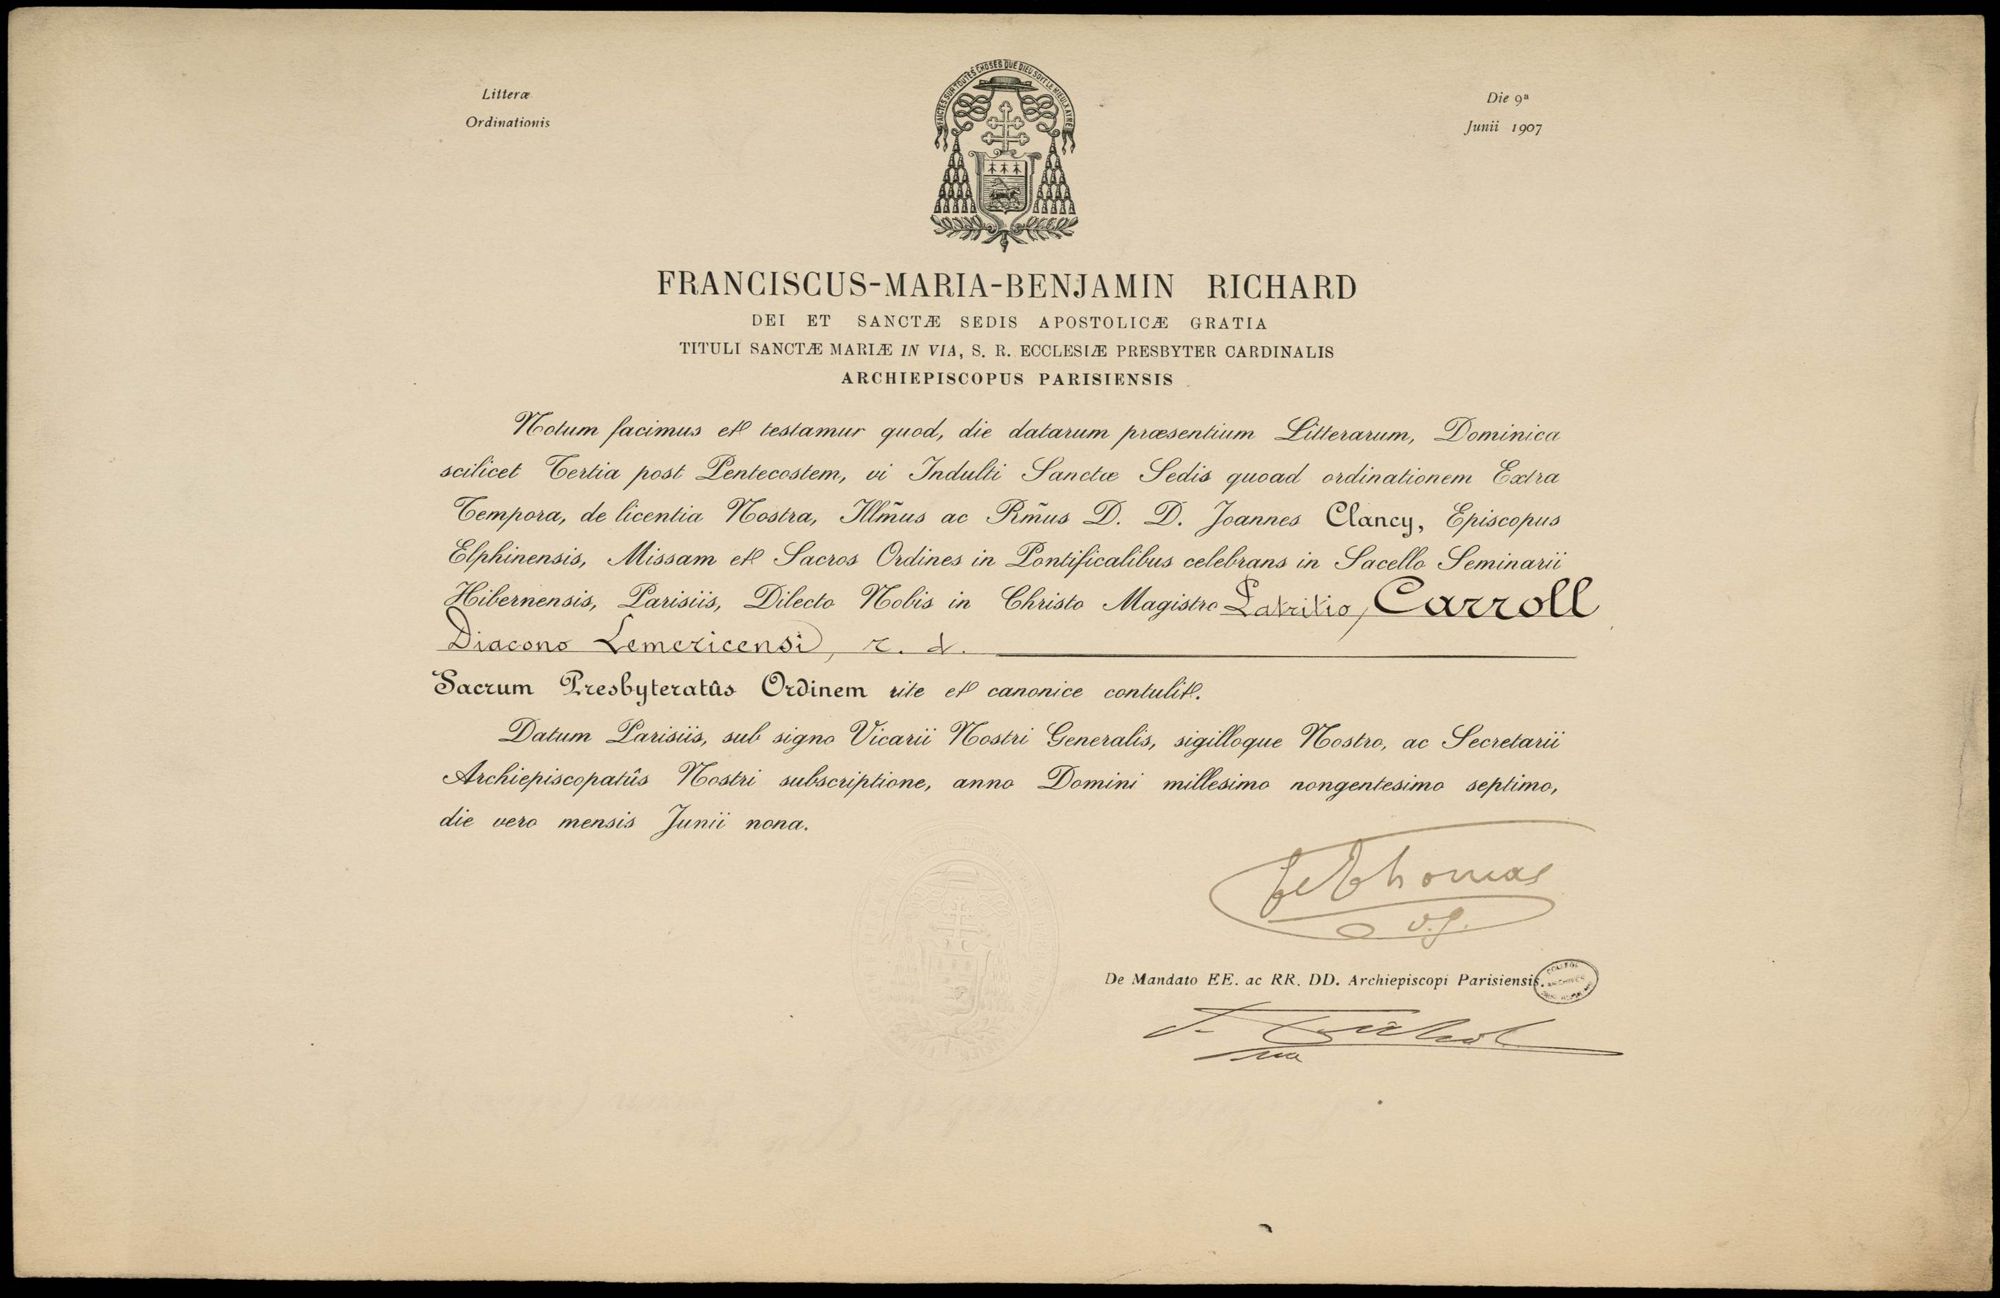 Litteræ
Ordinationis
Die 9ª
Junii 1907
FAICTES SUR TOUTES CHOSES QUE DIEU SOIT LE MIEULX AYMÉ
FRANCISCUS-MARIA-BENJAMIN RICHARD
DEI ET SANCTÆ SEDIS APOSTOLICÆ GRATIA
TITULI SANCTÆ MARIÆ IN VIA, S. R. ECCLESIÆ PRESBYTER CARDINALIS
ARCHIEPISCOPUS PARISIENSIS
Notum facimus et testamur quod, die datarum præsentium Litterarum, Dominica
scilicet Tertia post Pentecostem, vi Indulti Sanctæ Sedis quoad ordinationem Extra
Tempora, de licentia Nostra, Illm̃us ac Rm̃us D. D. Joannes Clancy, Episcopus
Elphinensis, Missam et Sacros Ordines in Pontificalibus celebrans in Sacello Seminarii
Hibernensis, Parisiis, Dilecto Nobis in Christo Magistro Patritio, Carroll
Diacono Lemericensi, r. d.
Sacrum Presbyteratûs Ordinem rite et canonice contulit.
Datum Parisiis, sub signo Vicarii Nostri Generalis, sigilloque Nostro, ac Secretarii
Archiepiscopatûs Nostri subscriptione, anno Domini millesimo nongentesimo septimo,
die vero mensis Junii nona.
Thomas
v.g.
De Mandato EE. ac RR. DD. Archiepiscopi Parisiensis.
COLLEGE
ARCHIVES